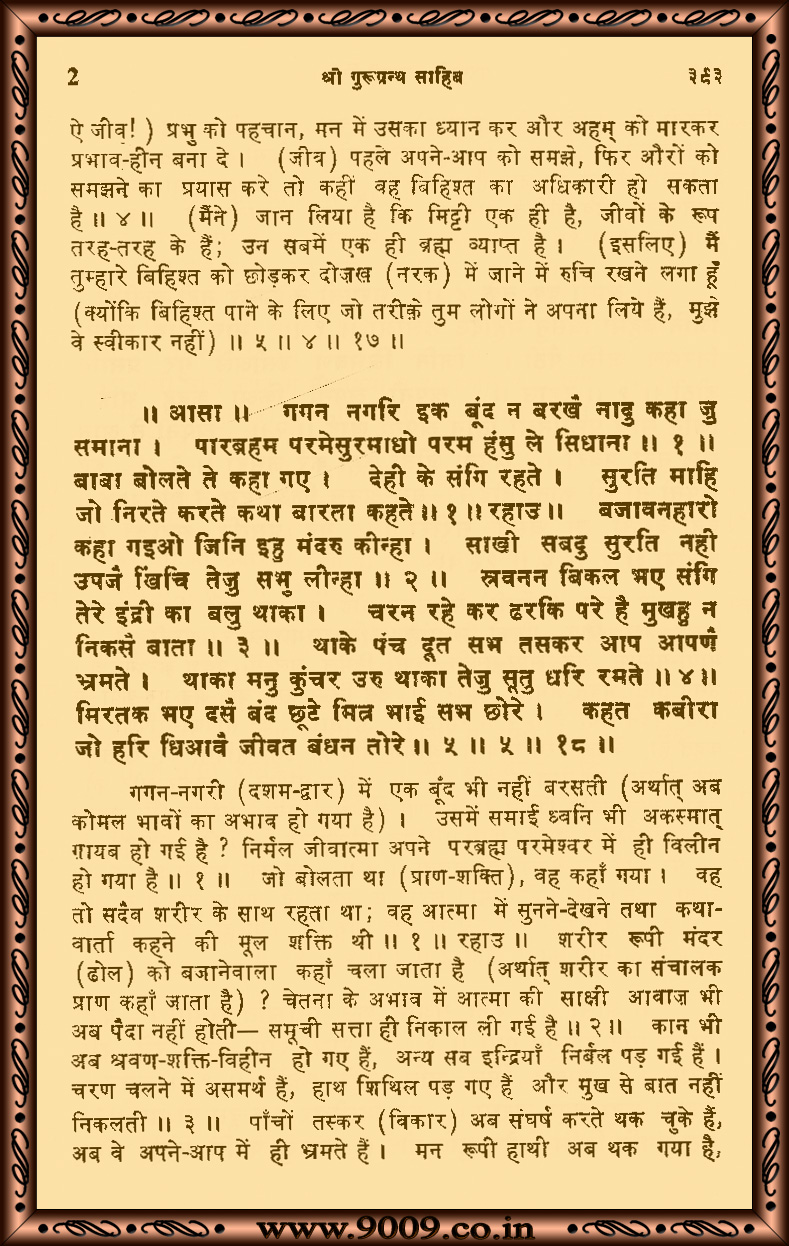 2 श्री गुरूग्रन्थ साहिब ३९३
ऐ जीव! ) प्रभु को पहचान, मन में उसका ध्यान कर और अहम् को मारकर
प्रभाव-हीन बना दे । (जीव) पहले अपने-आप को समझे, फिर औरों को
समझने का प्रयास करे तो कहीं वह बिहिश्त का अधिकारी हो सकता
है ॥ ४ ॥ (मैंने) जान लिया है कि मिट्टी एक ही है, जीवों के रूप
तरह-तरह के हैं; उन सबमें एक ही ब्रह्म व्याप्त है । (इसलिए) मैं
तुम्हारे बिहिश्त को छोड़कर दोज़ख (नरक) में जाने में रुचि रखने लगा हूँ
(क्योंकि बिहिश्त पाने के लिए जो तरीक़े तुम लोगों ने अपना लिये हैं, मुझे
वे स्वीकार नहीं) ॥ ५ ॥ ४ ॥ १७ ॥
॥ आसा ॥ गगन नगरि इक बूंद न बरखै नादु कहा जु
समाना । पारब्रहम परमेसुरमाधो परम हंसु ले सिधाना ॥ १ ॥
बाबा बोलते ते कहा गए । देही के संगि रहते । सुरति माहि
जो निरते करते कथा बारता कहते ॥ १ ॥ रहाउ ॥ बजावनहारो
कहा गइओ जिनि इहु मंदरु कीन्हा । साखी सबदु सुरति नही
उपजै खिंचि तेजु सभु लीन्हा ॥ २ ॥ स्रवनन बिकल भए संगि
तेरे इंद्री का बलु थाका । चरन रहे कर ढरकि परे है मुखहु न
निकसै बाता ॥ ३ ॥ थाके पंच दूत सभ तसकर आप आपणै
भ्रमते । थाका मनु कुंचर उरु थाका तेजु सूतु धरि रमते ॥ ४ ॥
मिरतक भए दसै बंद छूटे मित्र भाई सभ छोरे । कहत कबीरा
जो हरि धिआवै जीवत बंधन तोरे ॥ ५ ॥ ५ ॥ १८ ॥
गगन-नगरी (दशम-द्वार) में एक बूँद भी नहीं बरसती (अर्थात् अब
कोमल भावों का अभाव हो गया है) । उसमें समाई ध्वनि भी अकस्मात्
ग़ायब हो गई है ? निर्मल जीवात्मा अपने परब्रह्म परमेश्वर में ही विलीन
हो गया है ॥ १ ॥ जो बोलता था (प्राण-शक्ति), वह कहाँ गया । वह
तो सदैव शरीर के साथ रहता था; वह आत्मा में सुनने-देखने तथा कथा-
वार्ता कहने की मूल शक्ति थी ॥ १ ॥ रहाउ ॥ शरीर रूपी मंदर
(ढोल) को बजानेवाला कहाँ चला जाता है (अर्थात् शरीर का संचालक
प्राण कहाँ जाता है) ? चेतना के अभाव में आत्मा की साक्षी आवाज़ भी
अब पैदा नहीं होती— समूची सत्ता ही निकाल ली गई है ॥ २ ॥ कान भी
अब श्रवण-शक्ति-विहीन हो गए हैं, अन्य सब इन्द्रियाँ निर्बल पड़ गई हैं ।
चरण चलने में असमर्थ हैं, हाथ शिथिल पड़ गए हैं और मुख से बात नहीं
निकलती ॥ ३ ॥ पाँचों तस्कर (विकार) अब संघर्ष करते थक चुके हैं,
अब वे अपने-आप में ही भ्रमते हैं । मन रूपी हाथी अब थक गया है,
www.9009.co.in